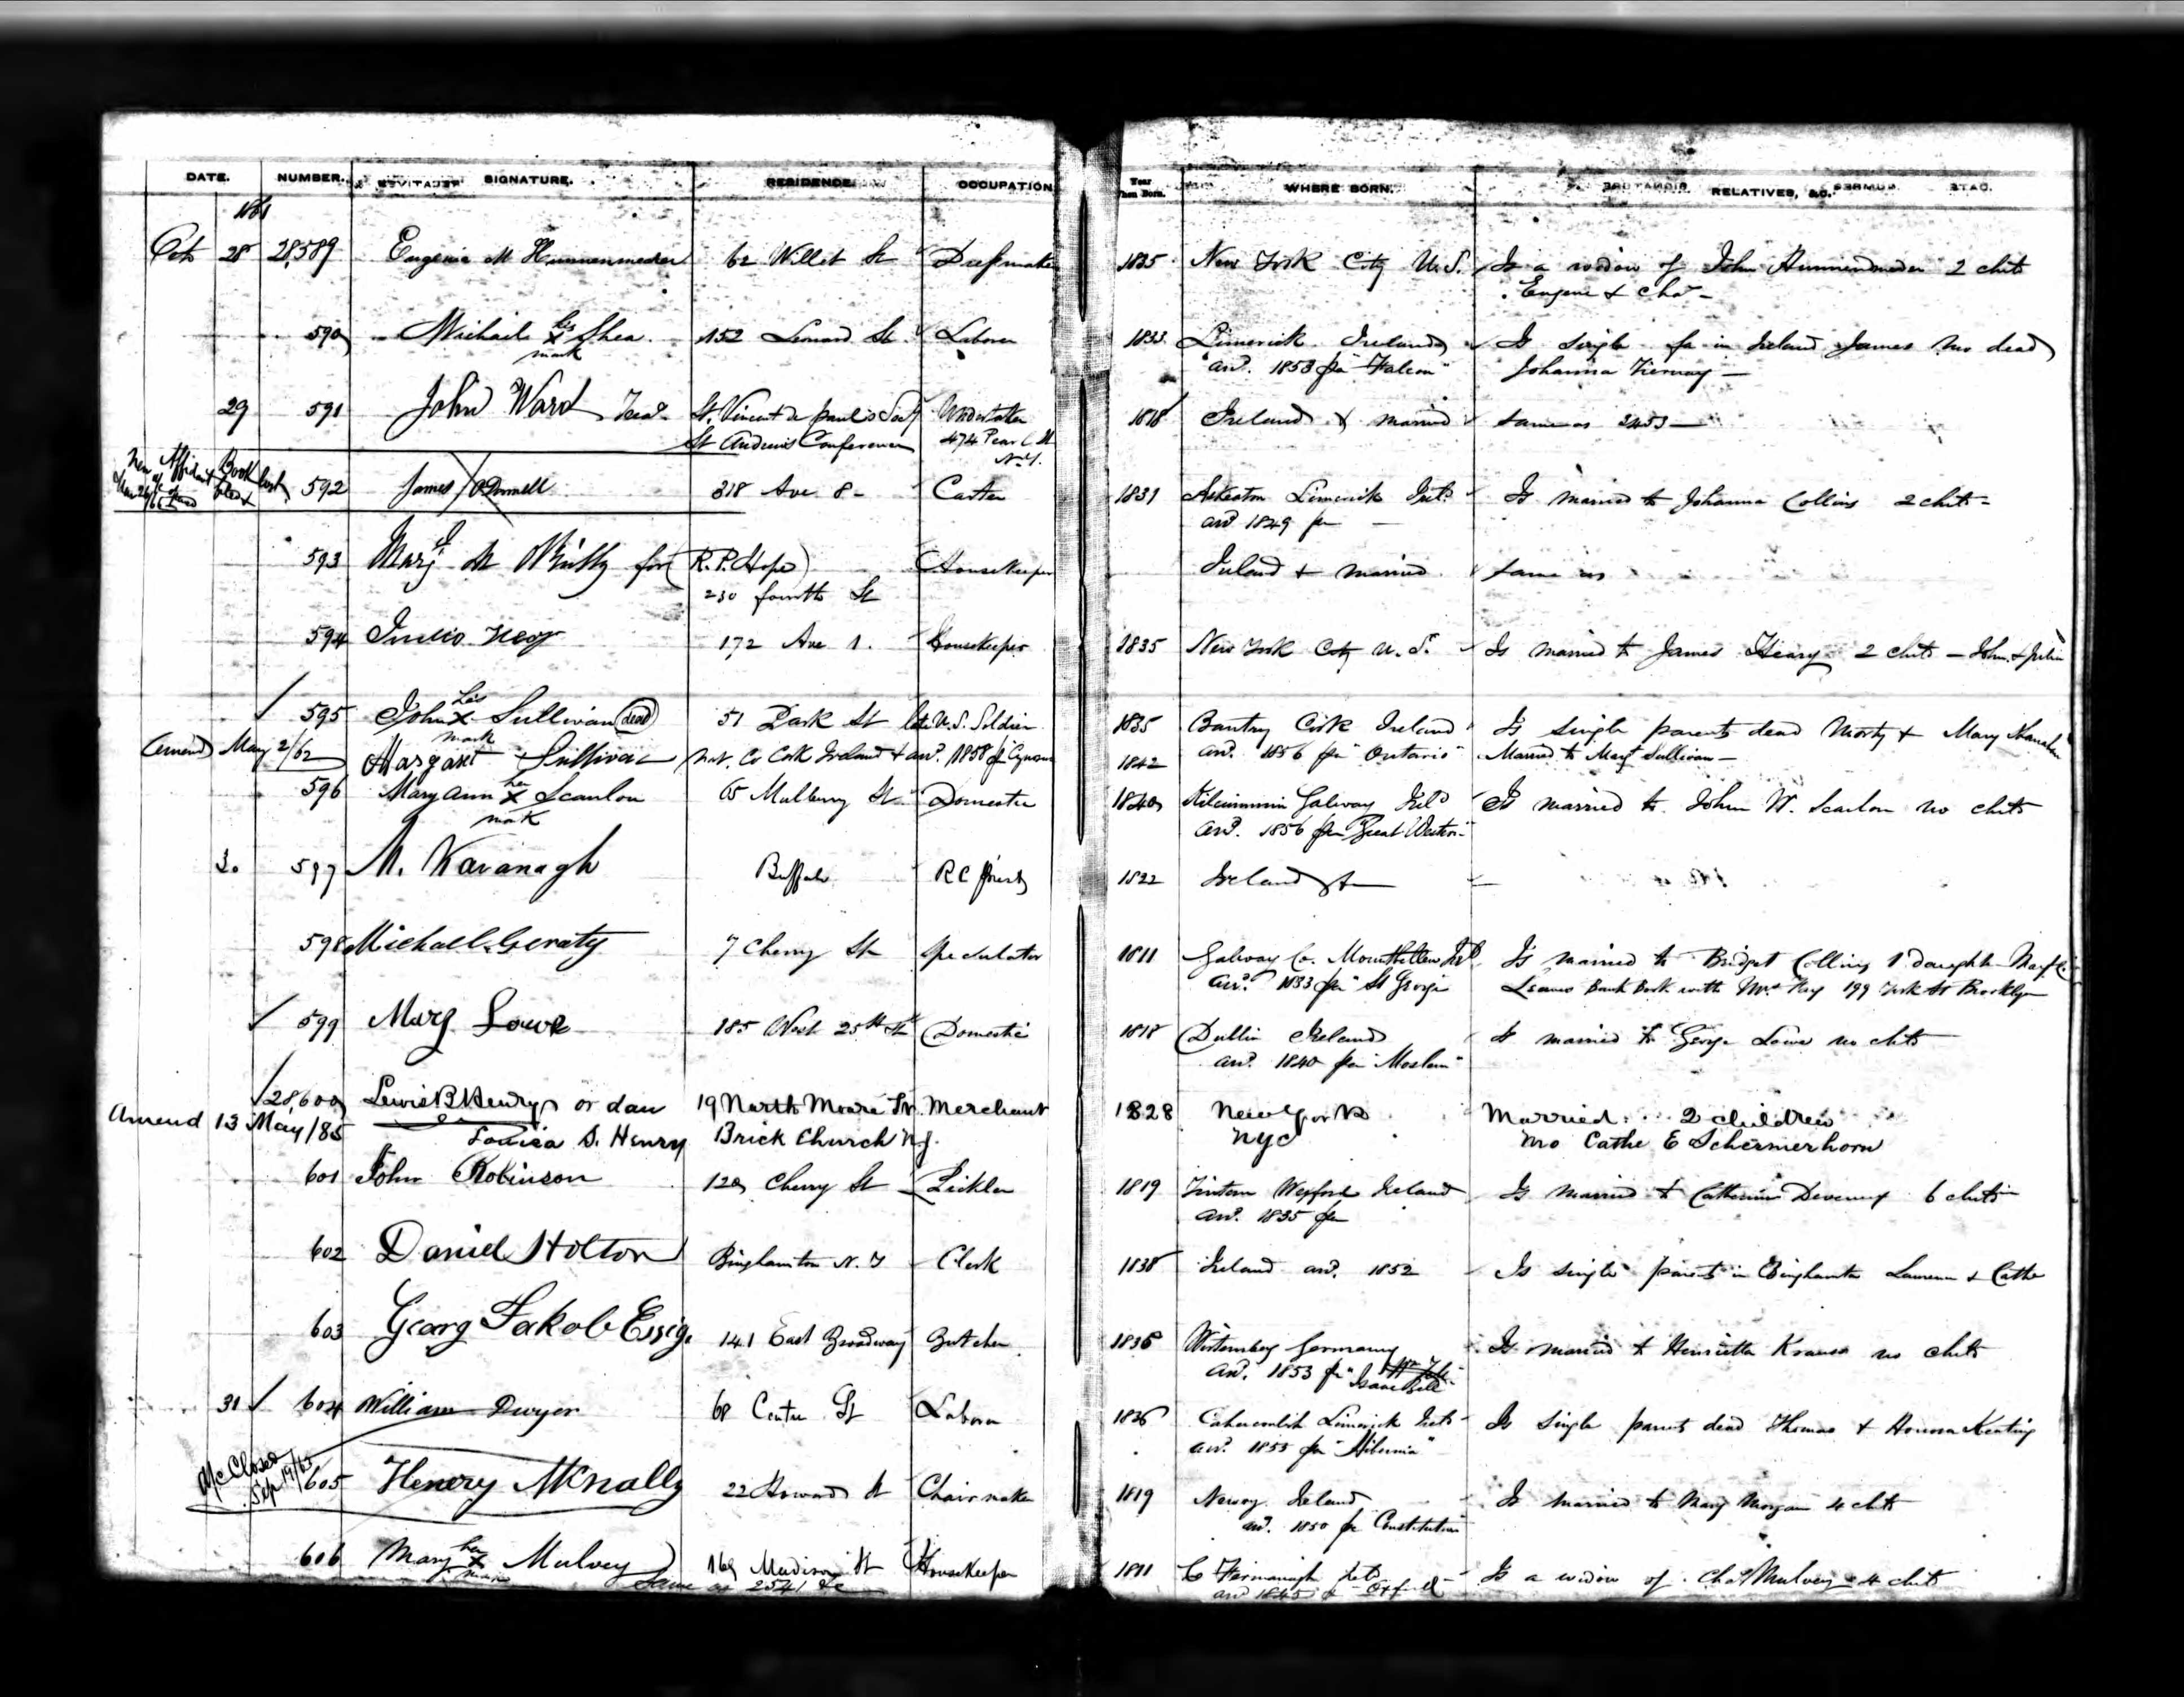 DATE. NUMBER. SIGNATURE. RESIDENCE. OCCUPATION Year When Born. WHERE BORN. RELATIVES, &C.
1861
Oct 28 28,589 Eugenia M 62 Willet St Dressmaker 1835 New York City U.S. Is a widow of John 2 chn
Eugene & Chas
590 Michael his x mark Shea 152 Leonard St Laborer 1833 Limerick Ireland Is single fa in Ireland James mo dead
arrd. 1853 per "Falcon" Johanna Tierney
29 591 John Ward Treas St. Vincent de Paul's Socy Undertaker 1818 Ireland & married same as 2453
St Andrews Conference 474 Pearl St
N.Y.
New Affidavit Book lost
592 James O'Donnell 318 Ave 8 Carter 1831 Askeaton Limerick Ireld Is married to Johanna Collins 2 chn
arrd 1849 per
593 Mary M for (R.P. Hope) Housekeeper Ireland & married same as
230 fourth St
594 172 Ave 1. Housekeeper 1835 New York City U.S. Is married to James Heary 2 chn John & Julia
595 John his x mark Sullivan (dead) 51 Park St late U.S. Soldier 1835 Bantry Cork Ireland Is single parents dead Morty & Mary
arrd. 1856 per "Ontario" Married to Margt Sullivan
Amend May 2/62 Margaret Sullivan nat. Co Cork Ireland & arrd. 1858 1842
596 Mary Ann her x mark Scanlon 65 Mulberry St Domestic 1840 Galway Ireld Is married to John W. Scanlon no chn
arrd. 1856 per "Great Western"
30 597 M. Kavanagh Buffalo RC Priest 1822 Ireland
598 Michael Geraty 7 Cherry St Speculator 1811 Galway Co. Is married to Bridget Collins 1 daughter
arrd. 1833 per "St George" Leaves Bank Book with Mrs 199 York St Brooklyn
599 Mary Lowe 185 West 25th St Domestic 1818 Dublin Ireland Is married to George Lowe no chn
arrd. 1840 per "Moslem"
28,600 Lewis B Henry or dau 19 North Moore St. Merchant 1828 New York Married. 2 children
Amend 13 May/85 Louisa S. Henry Brick Church N.J. NYC mo Cathe E Schermerhorn
601 John Robinson 120 Cherry St 1819 Tintern Wexford Ireland Is married to Catherine Deveney 6 chn
arrd. 1835 per
602 Daniel Holton Binghamton N.Y Clerk 1838 Ireland arrd. 1852 Is single parents in Binghamton & Cathe
603 Georg Jakob Essig. 141 East Broadway Butcher 1836 Wirtemberg Germany Is married to Henrietta Krauss no chn
arrd. 1853 per "Isaac Bell"
31 604 William Dwyer 68 Centre St Laborer 1826 Cahirconlish Limerick Ireld Is single parents dead Thomas & Honora Keating
arrd. 1855 per "Hibernia"
A/c Closed
Sep 19/65
605 Henery McNally 22 Howard St Chairmaker 1819 Newry Ireland Is married to Mary Morgan 4 chn
arrd. 1850 per "Constitution"
606 Mary her x mark Mulvey 169 Madison St Housekeeper 1811 C Fermanagh Ireld Is a widow of Chas Mulvey 4 chn
Same as 2541 &c arrd 1845